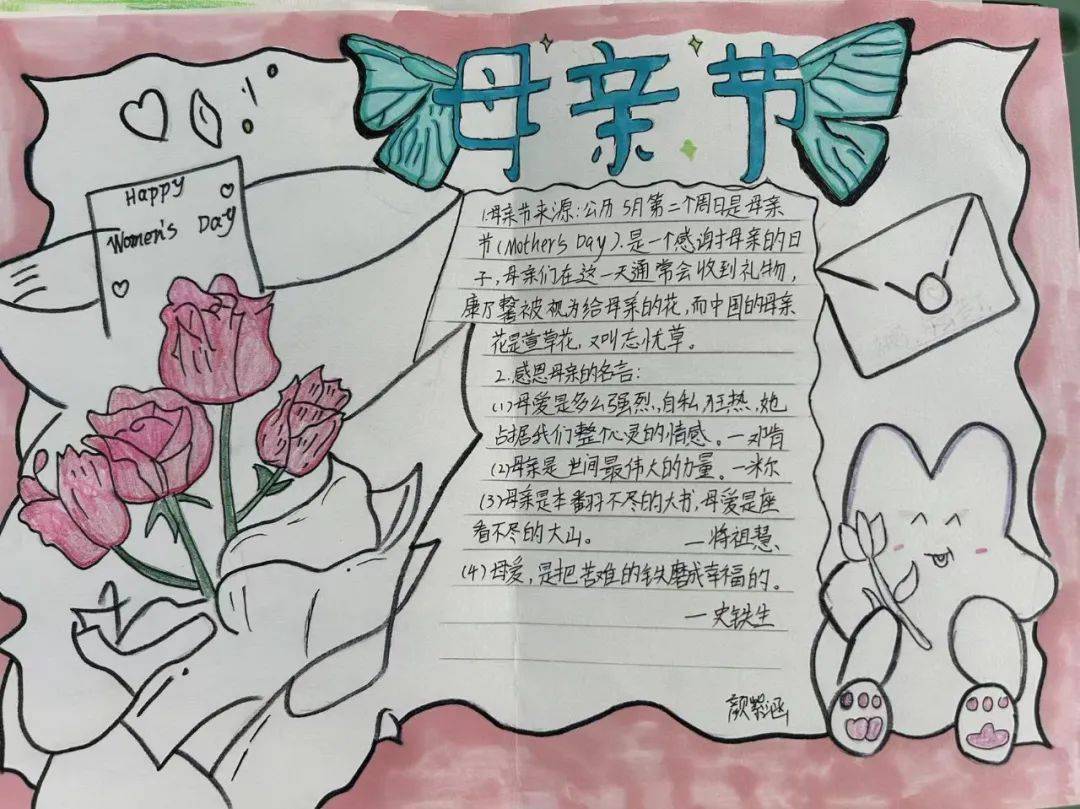 母亲节
Happy
Women's Day
1.母亲节来源:公历5月第二个周日是母亲
节(Mother's Day).是一个感谢母亲的日
子,母亲们在这一天通常会收到礼物,
康乃馨被视为给母亲的花,而中国的母亲
花是萱草花,又叫忘忧草。
2.感恩母亲的名言:
(1)母爱是多么强烈,自私,狂热,她
占据我们整个心灵的情感。—邓肯
(2)母亲是世间最伟大的力量。—米尔
(3)母亲是本翻不尽的大书,母爱是座
看不尽的大山。 —蒋祖慧
(4)母爱,是把苦难的铁磨成幸福的。
—史铁生
颜紫涵